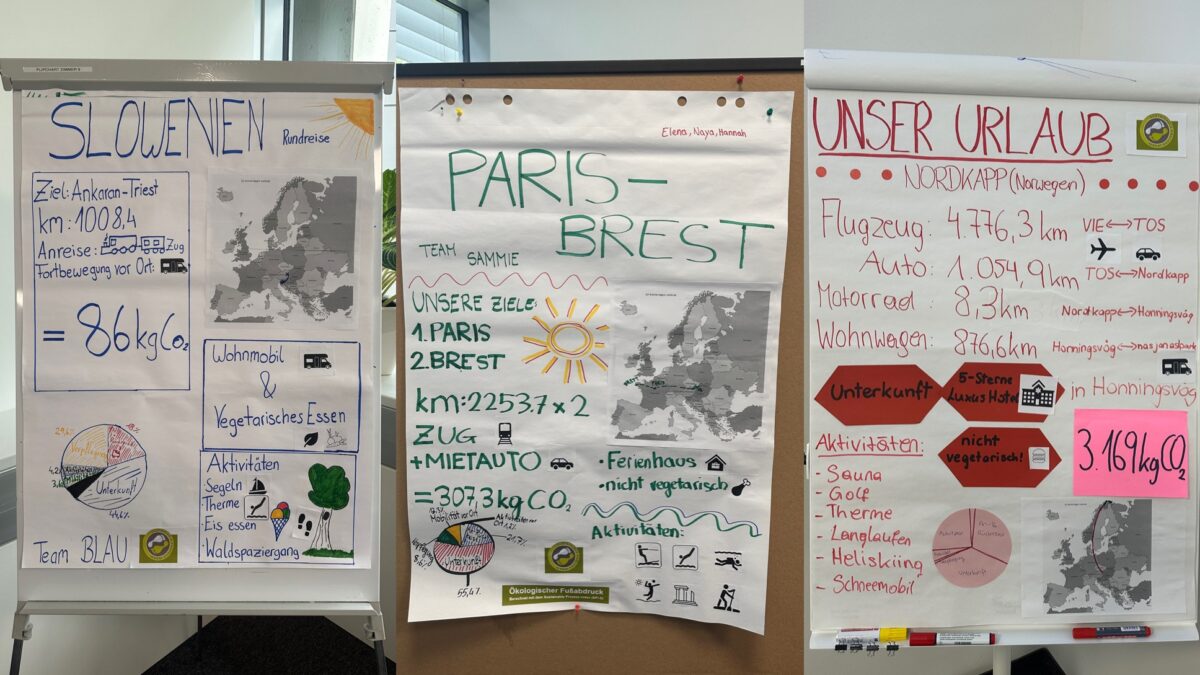 FLIPCHART ZIMMER 5
SLOWENIEN
Rundreise
Ziel: Ankaran-Triest
km: 1008,4
Anreise: Zug
Fortbewegung vor Ort:
= 86 kg CO₂
Wohnmobil
&
Vegetarisches Essen
29,6%
Verpflegung
Unterkunft
44,6%
Aktivitäten
Segeln
Therme
Eis essen
Waldspaziergang
Team BLAU
Elena, Naya, Hannah
PARIS-
BREST
TEAM SAMMIE
UNSERE ZIELE:
1. PARIS
2. BREST
km: 2253.7 × 2
ZUG
+ MIETAUTO
= 307,3 kg CO₂
• Ferienhaus
• nicht vegetarisch
Aktivitäten:
Mobilität vor Ort
Verpflegung
Unterkunft
55,4%
Ökologischer Fußabdruck
UNSER URLAUB
NORDKAPP (Norwegen)
Flugzeug: 4.776,3 km VIE↔TOS
Auto: 1.054,9 km TOS↔Nordkapp
Motorrad: 8,3 km Nordkapp↔Honningsvåg
Wohnwagen: 876,6 km Honningsvåg↔
Unterkunft
5-Sterne
Luxus Hotel
in Honningsvåg
nicht
vegetarisch!
3.169 kg CO₂
Aktivitäten:
- Sauna
- Golf
- Therme
- Langlaufen
- Heliskiing
- Schneemobil
Unterkunft